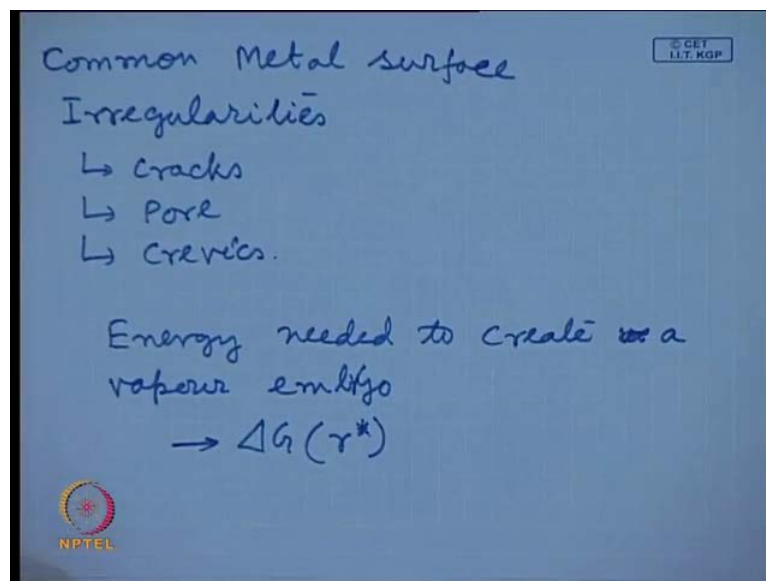 Common Metal surface
© CET
I.I.T. KGP
Irregularities
↳ Cracks
↳ Pore
↳ Crevics.
Energy needed to create a
vapour embryo
→ ΔG(r*)
NPTEL